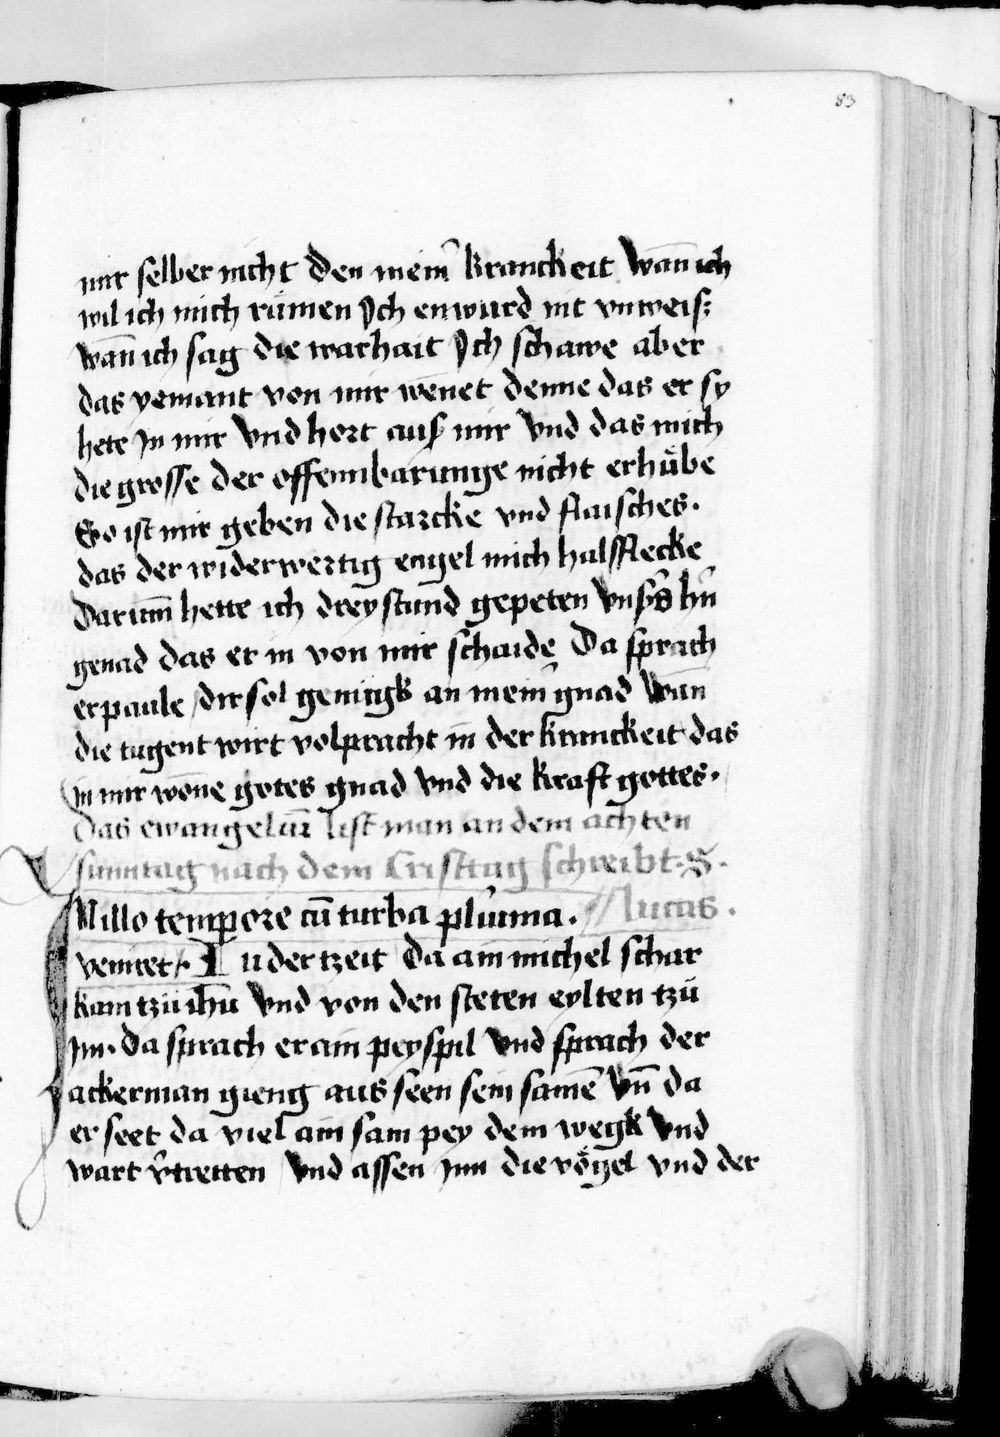 83
mir selber nicht Den mein̄ kranckeit Wan̄ ich
wil ich mich rümen Ich enwurd nit vnweis:
wan̄ ich sag die warhait Ich schawe aber
das yemant von mir wenet denne das er sy
hete In mir Vnd hort aus mir Vnd das mich
die grosse der offennbarunge nicht erhübe
So ist mir geben die starcke vnd flaisches.
das der widerwertig engel mich halsflecke
Darum̄ hette ich drey stund gepeten Vnsers hn̄
genad das er in von mir schaide Da sprach
er paule / dir sol genugk an mein̄ gnad Wan̄
die tugent wirt volpracht in der kranckeit das
in mir wōne gotes gnad Vnd die kraft gottes.
Das ewangeliū list man an dem achten
sunntag nach dem Cristtag schreibt. S.
IN illo tempore cū turba plurima. // lucas.
veniret. In der tzeit Da ain michel schar
kam tzü ihū Vnd von den steten eylten tzü
Im. Da sprach er ain peyspil Vnd sprach der
ackerman gieng aus seen sein samē Vn̄ da
er seet da viel ain sam pey dem wegk Vnd
wart v̄tretten Vnd assen Inn die vögel vnd der